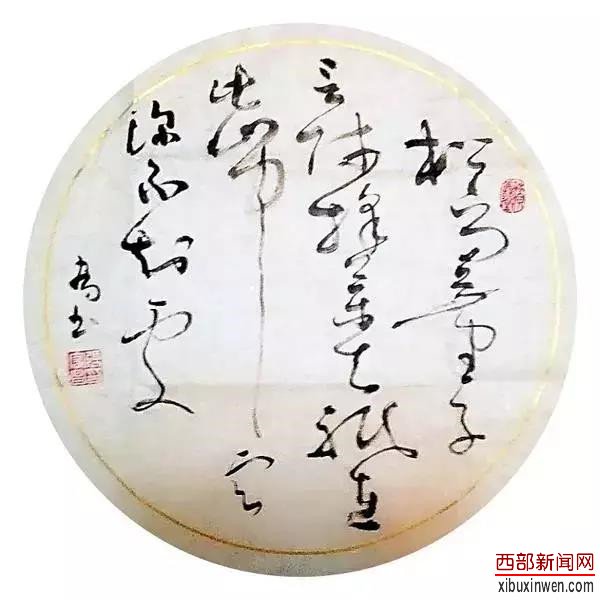 松下问童子
言师采药去只在
此山中云
深不知处
西部新闻网
xibuxinwen.com